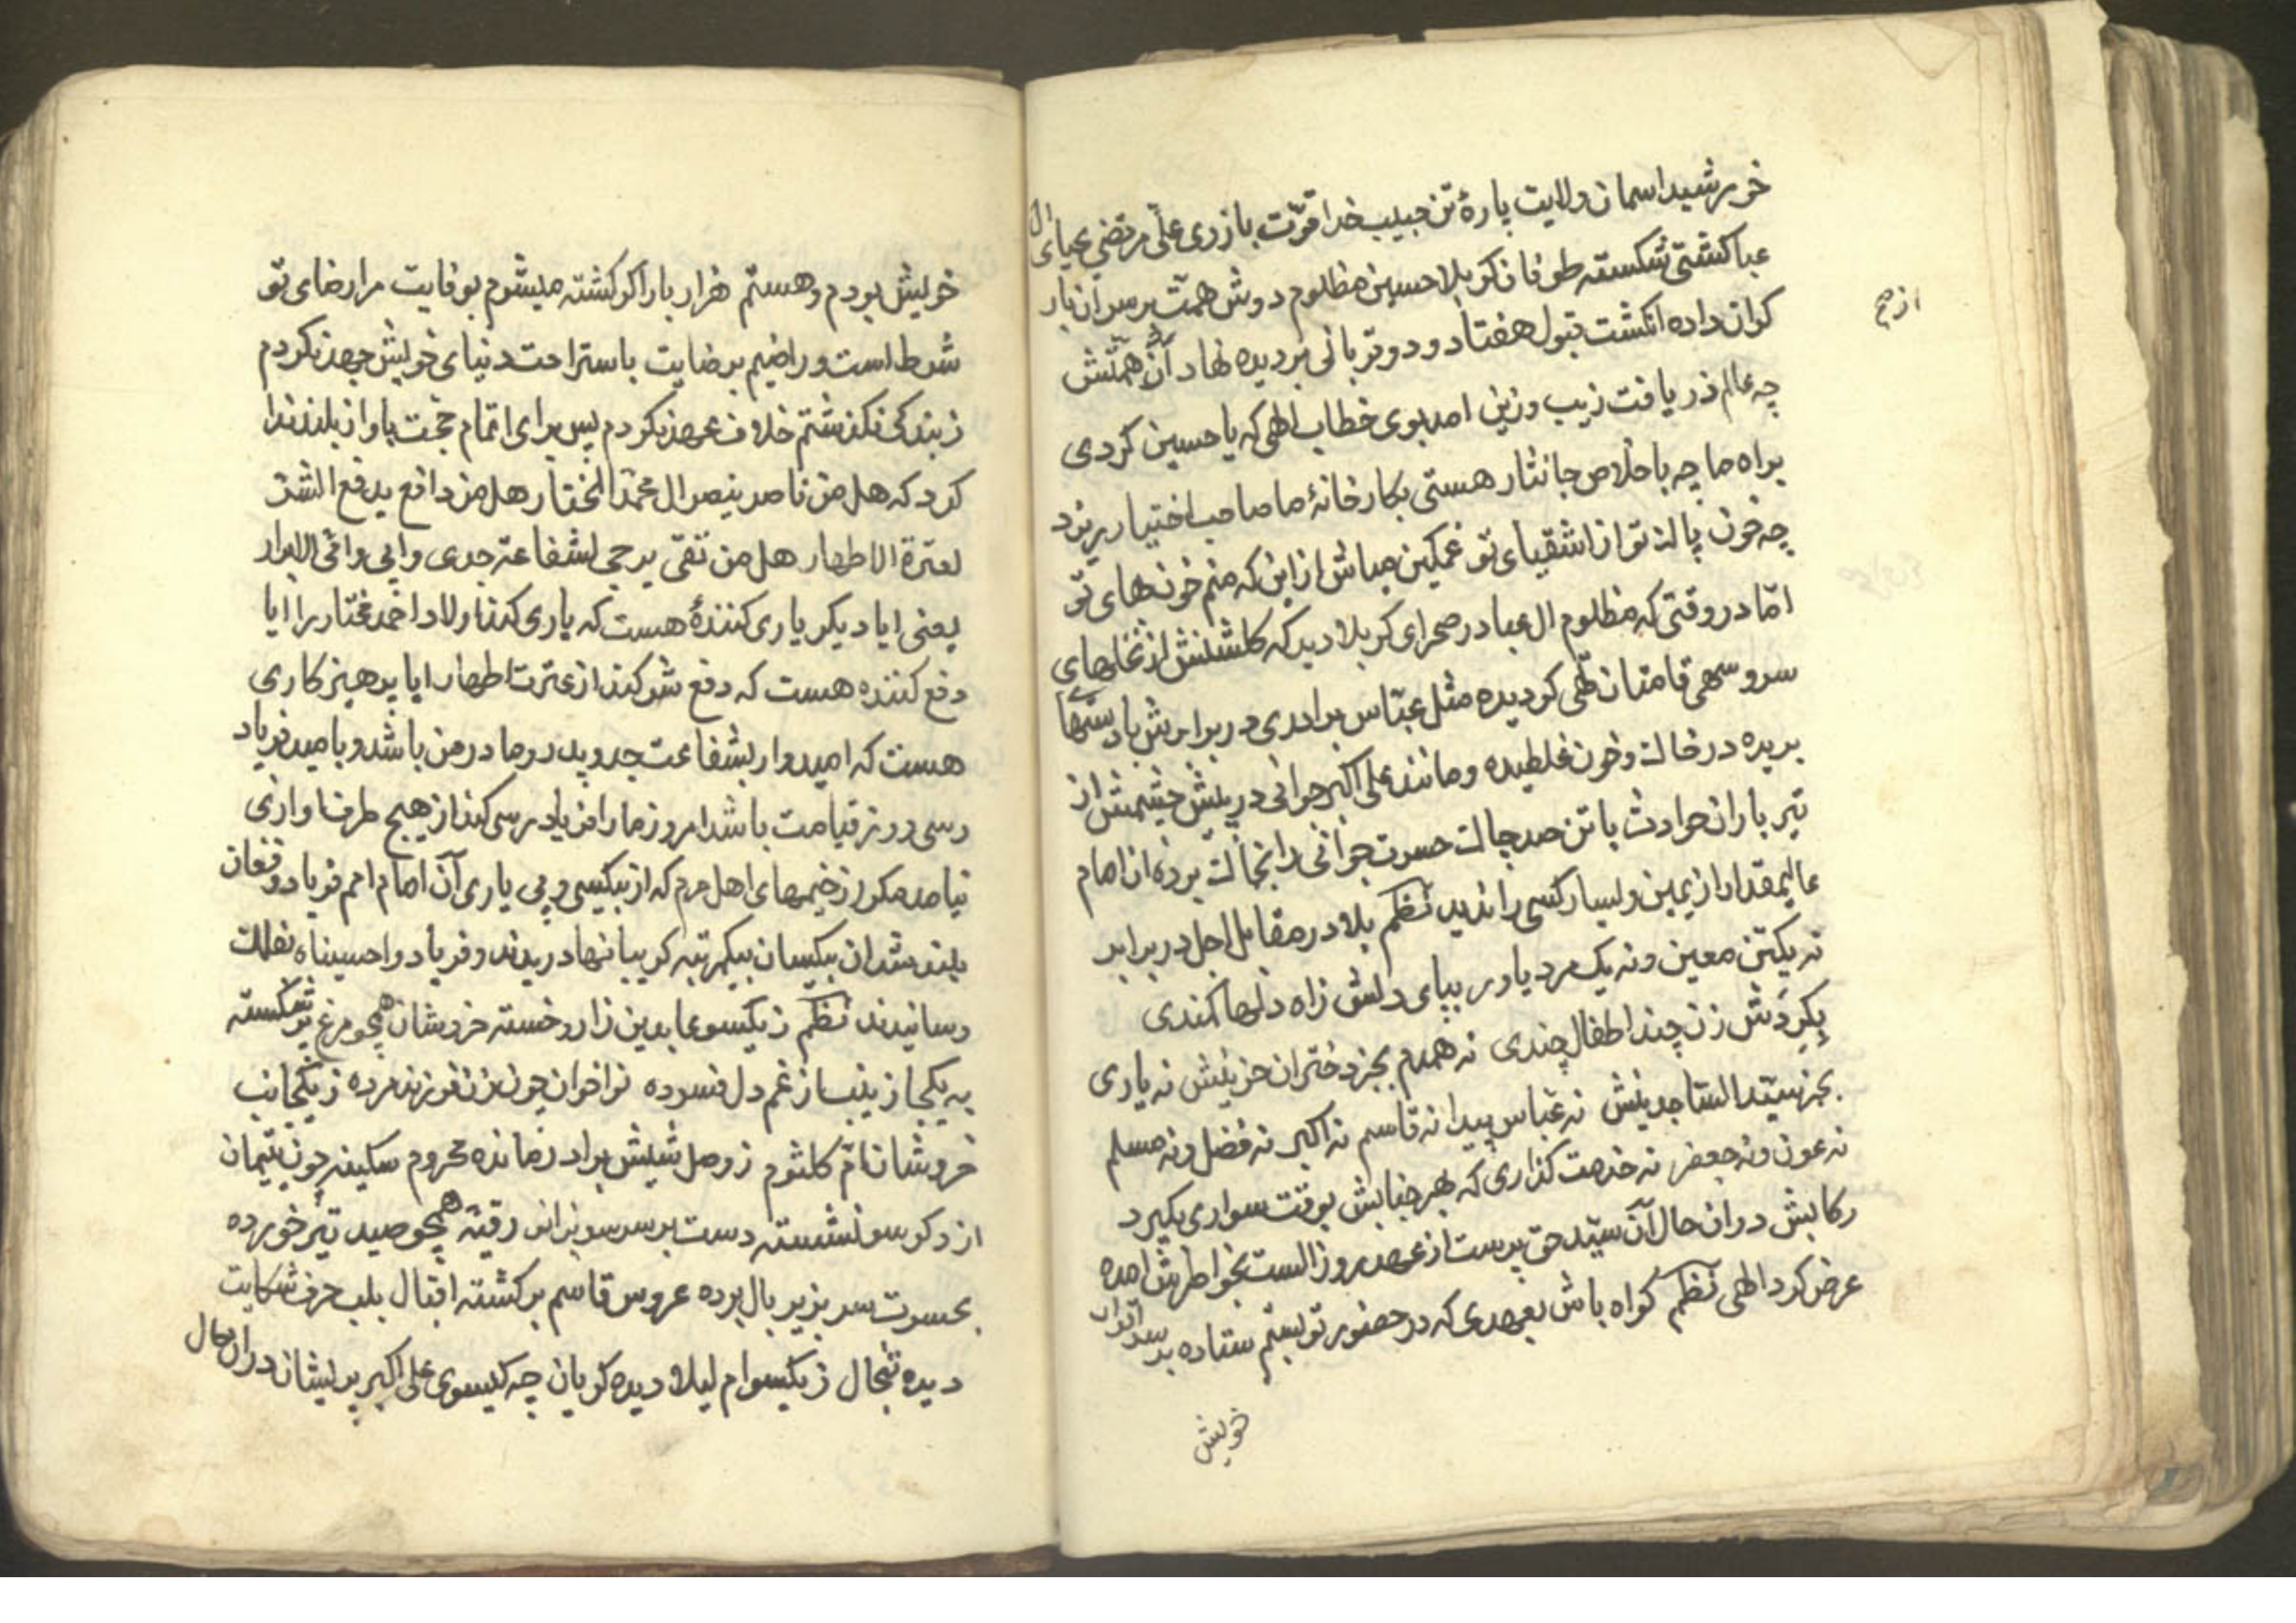 خورشید اسمان ولایت پارهٔ تن حبیب خدا قوّت بازوی علّی مرتضی عبای ال
عبا کشتی شکسته طوفان کربلا حسین مظلوم دوش همّت برسر ان بار
کران داده انکشت قبول هفتاد و دو قربانی بردیده نهاد آن همّتش
از صح
چه عالم ذر یافت زیب و زین امد بوی خطاب الهی که یا حسین کردی
براه ما چه با خلاص جانثار هستی بکارخانهٔ ما صاحب اختیار بریزد
چه خون پاك تو از اشقیای تو غمکین مباش از این که منم خونهای تو
امّا در وقتی که مظلوم ال عبا در صحرای کربلا دید که کلشنش از نخلهای
سرو سهی قامتان تهی کردیده مثل عبّاس برادری در برابرش باد ستها
بریده در خاك و خون غلطیده و مانند علی اکبر جوانی در پیش چشمش از
تیر باران حوادث با تن صد چاك حسرت جوانی را بخاك برده ان امام
عالیمقدار از یمین و یسار کسی را ندید نظم بلا در مقابل اجل در برابر
نه یکتن معین و نه یک مرد یاور بپای دلش زاه دلها کمندی
بکردش زن چند اطفال چندی نه همدم بجز دختران حزینش نه یاری
بجز سیّد السّاجدینش نه عبّاس پیدا نه قاسم نه اکبر نه فضل و نه مسلم
نه عون و نه جعفر نه خدمت کذاری که بهر جنابش بوقت سواری بکیرد
رکابش در ان حال آن سیّد حق پرست از عهد روز الست بخواطرش امده
عرض کرد الهی نظم کواه باش بعهدی که در حضور تو بستم ستاده بر سر اقرار
خویش
خویش بودم و هستم هزار بار اکر کشته میشوم بوفایت مرا رضای تو
شرط است و راضیم برضایت باستراحت دنیای خویش جهد نکردم
ز بندکی نکذشتم خلاف عهد نکردم پس برای اتمام حجّت باواز بلند ندا
کرد که هل من ناصر ینصر ال محمّد المختار هل من دافع یدفع الشّر
لعترة الاطهار هل من تقی یرجی لشفاعته جدی و ابی و امّی الابرار
یعنی ایا دیکر یاری کنندهٔ هست که یاری کند اولاد احمد مختار را ایا
دفع کننده هست که دفع شر کند از عترت اطهار ایا پرهیز کاری
هست که امیدوار بشفاعت جد و پدر و مادر من باشد و بامید فریاد
رسی روز قیامت باشد امروز ما را فریاد رسی کند از هیچ طرف اوازی
نیامد مکر از خیمهای اهل حرم که از بیکسی و بی یاری آن امام امم فریاد و فغان
بلند شد ان بیکسان بیکمرتبه کریبانها دریدند و فریاد وا حسیناه بفلك
رسانیدند نظم ز یکسو عابدین زار و خسته خروشان همچو مرغ پر شکسته
به یکجا زینب از غم دل فسرده نواخوان چون زن فرزند مرده ز یکجانب
خروشان امّ کلثوم ز وصل شیش برادر مانده محروم سکینه چون یتیمان
از دکر سو نشسته دست برسر سر بزانو رقیّه همچو صید تیر خورده
بحسرت سر بزیر بال برده عروس قاسم برکشته اقبال بلب حرف شکایت
دیده تبخال ز یکسو ام لیلا دیده کریان چه کیسوی علی اکبر پریشان در ان حال